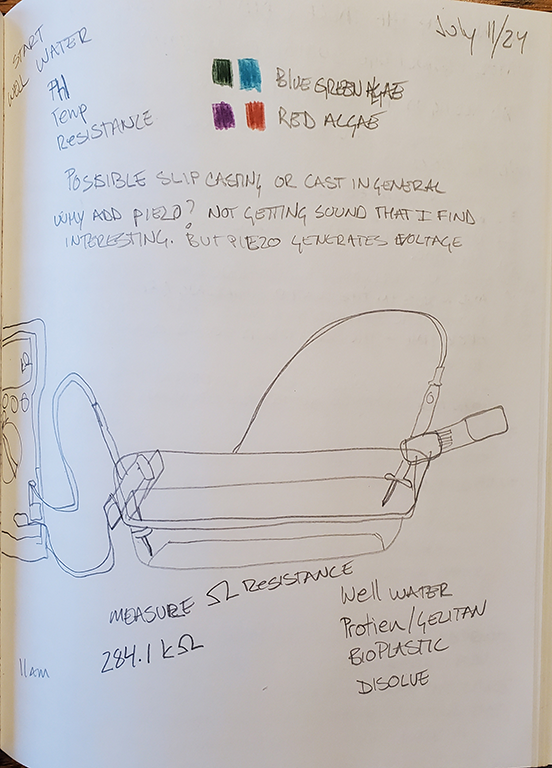 July 11/24
START
WELL WATER
PH
Temp
RESISTANCE
BLUE GREEN ALGAE
RED ALGAE
POSSIBLE SLIP CASTING OR CAST IN GENERAL
WHY ADD PIEZO? NOT GETTING SOUND THAT I FIND
INTERESTING. BUT PIEZO GENERATES VOLTAGE
MEASURE Ω RESISTANCE
284.1 KΩ
11am
Well WATER
Protien/GELITAN
BIOPLASTIC
DISOLVE